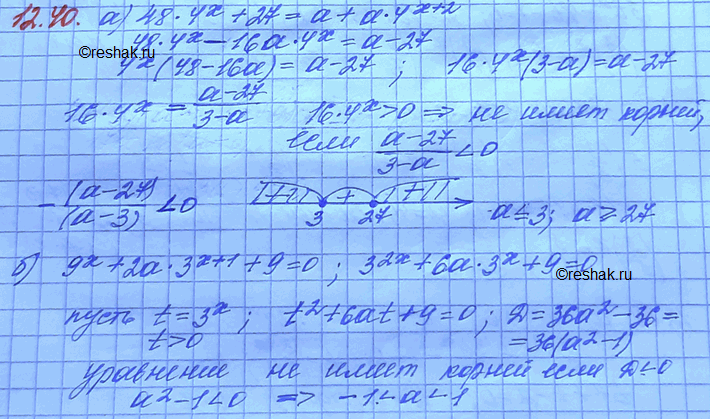 12.40. а) 48·4^x + 27 = a + a·4^(x+2)
48·4^x − 16a·4^x = a − 27
4^x (48 − 16a) = a − 27 ; 16·4^x (3 − a) = a − 27
16·4^x = (a − 27)/(3 − a) 16·4^x > 0 ⇒ не имеет корней,
если (a − 27)/(3 − a) < 0
©reshak.ru
− (a − 27)/(a − 3) < 0 + 3 + 27 + a ≤ 3; a ≥ 27
б) 9^x + 2a·3^(x+1) + 9 = 0 ; 3^(2x) + 6a·3^x + 9 = 0
©reshak.ru
пусть t = 3^x ; t² + 6at + 9 = 0 ; D = 36a² − 36 =
t > 0 = 36(a² − 1)
уравнение не имеет корней если D < 0
a² − 1 < 0 ⇒ −1 < a < 1